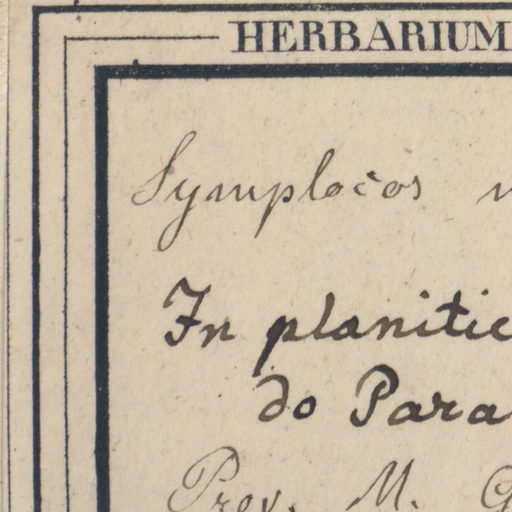 HERBARIUM
Symplocos
In planitie
do Para
Prov. M. G